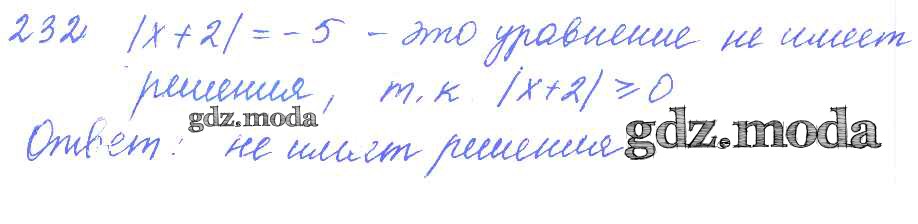 232 |x+2| = -5 - это уравнение не имеет
решения, т.к. |x+2| ⩾ 0
gdz.moda
Ответ: не имеет решения
gdz.moda